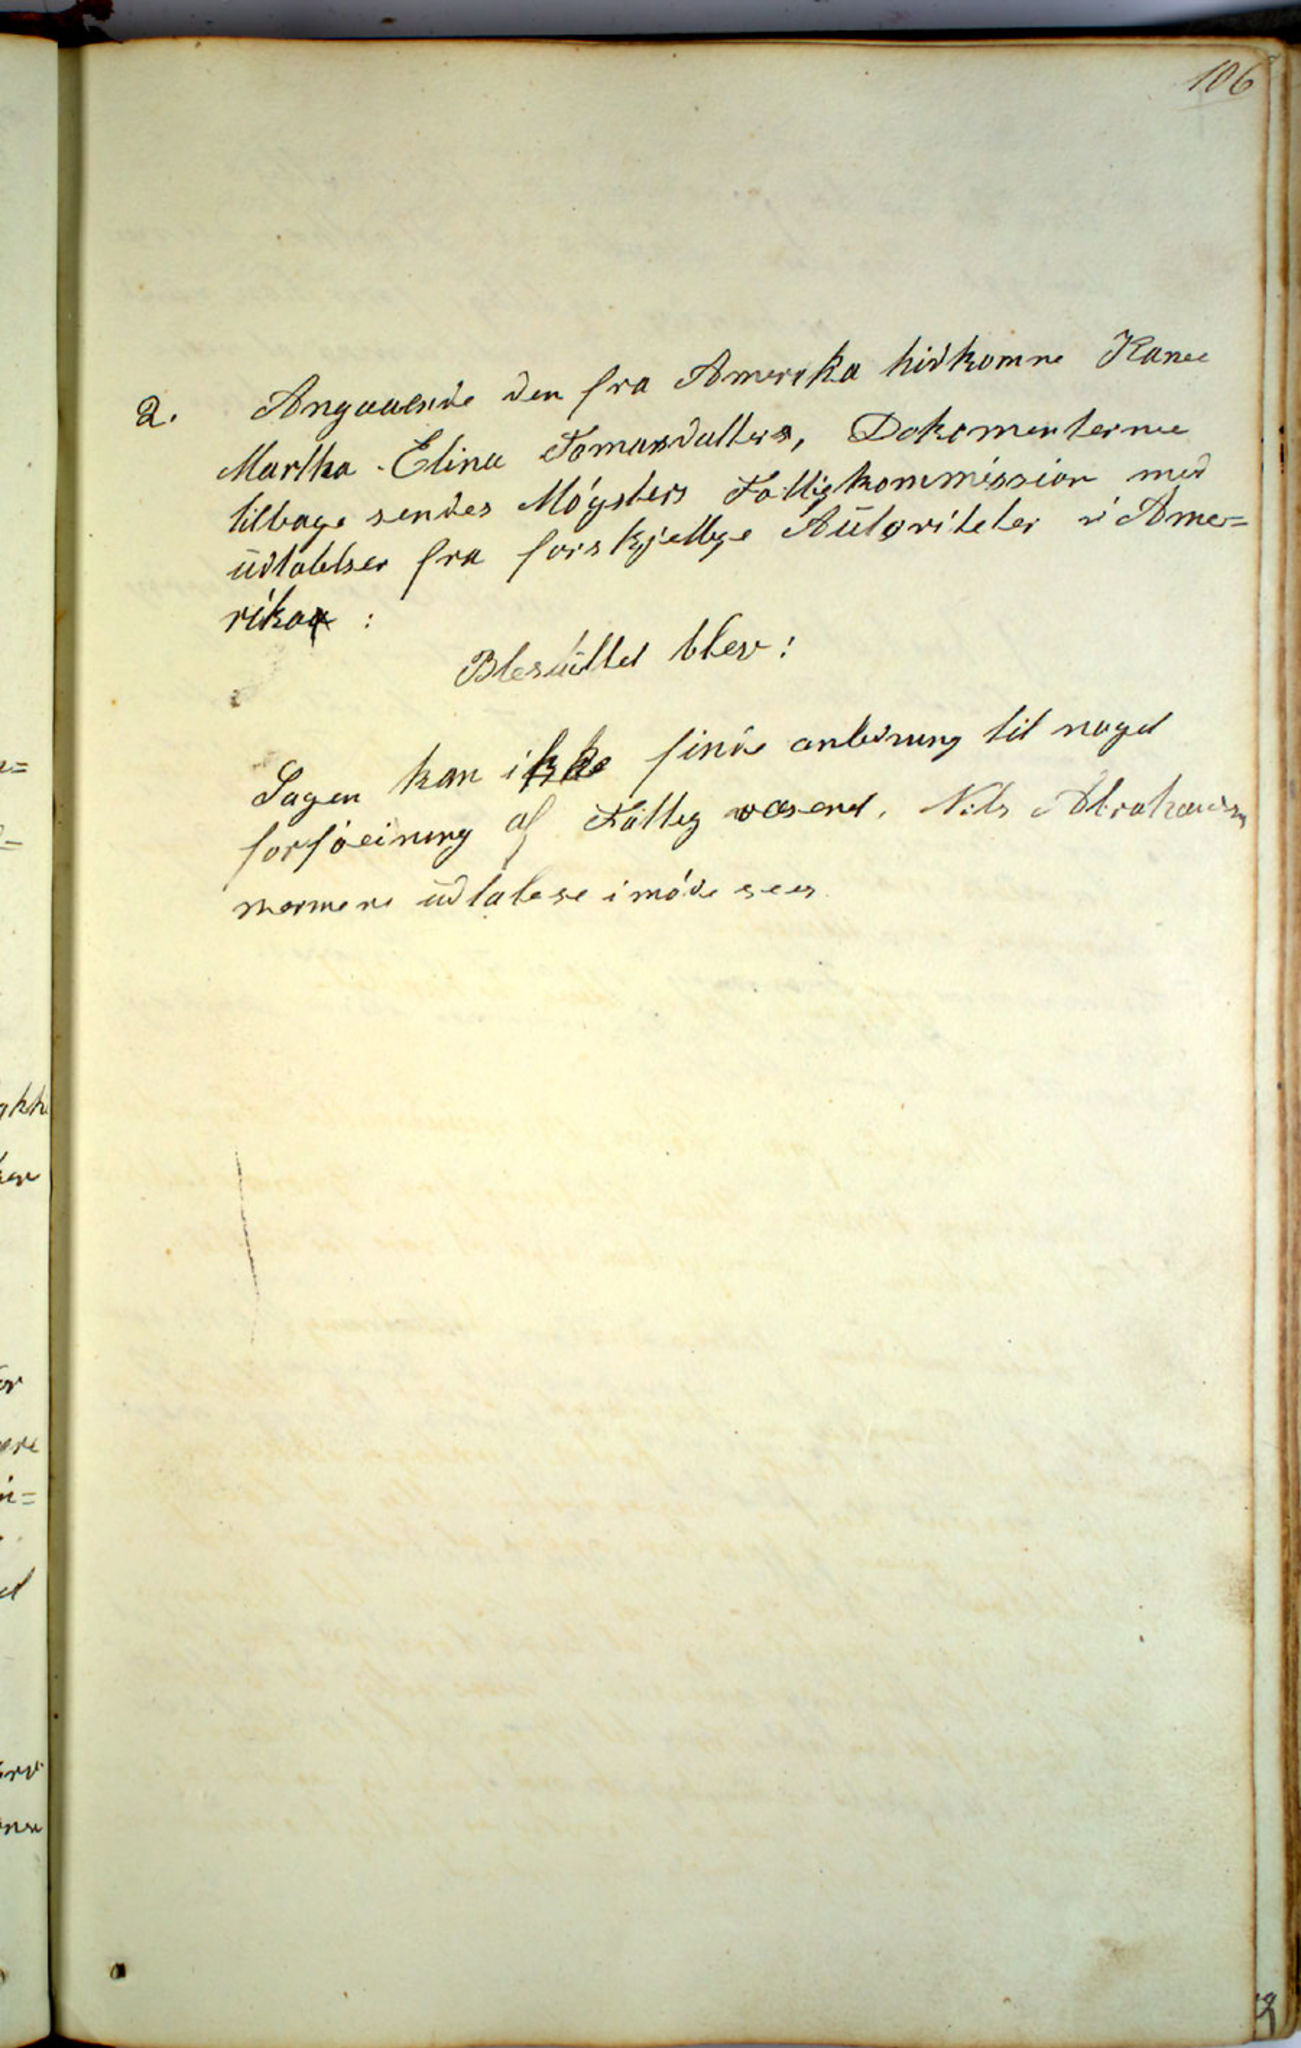 106
2. Angaaende den fra Amerika hidkomne Kone
Martha Elina Tomasdatters, Dokomenterne
tilbage sendes Møgsters Fattigkommission med
üdtalelser fra forskjellige Aütoriteter i Ame=
rika :
Beslüttet blev:
Sagen kan ikke finde anledning til noget
forføeining af Fattig væsend. Nils Abrahamsen
nærmere üdtalese imøde sees.